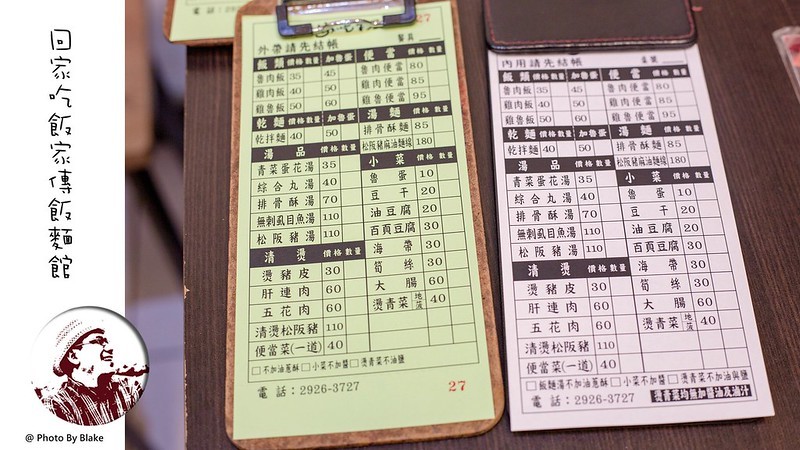 回家吃飯家傳飯麵館
@ Photo By Blake
27
外帶請先結帳
飯類 價格 數量 加魯蛋 便當 價格 數量
魯肉飯 35 45 魯肉便當 80
雞肉飯 40 50 雞肉便當 85
雞魯飯 50 60 雞魯便當 95
乾麵 價格 數量 加魯蛋 湯麵 價格 數量
乾拌麵 40 50 排骨酥麵 85
松阪豬麻油麵線 180
湯品 價格 數量 小菜 價格 數量
青菜蛋花湯 35 魯蛋 10
綜合丸湯 40 豆干 20
排骨酥湯 70 油豆腐 20
無刺虱目魚湯 110 百頁豆腐 30
松阪豬湯 110 海帶 30
清燙 價格 數量 筍絲 30
燙豬皮 30 大腸 60
肝連肉 60 燙青菜 地瓜 40
五花肉 60
清燙松阪豬 110
便當菜(一道) 40
□不加油蔥酥 □小菜不加醬 □燙青菜不油鹽
電話：2926-3727
27
內用請先結帳
飯類 價格 數量 加魯蛋 便當 價格 數量
魯肉飯 35 45 魯肉便當 80
雞肉飯 40 50 雞肉便當 85
雞魯飯 50 60 雞魯便當 95
乾麵 價格 數量 加魯蛋 湯麵 價格 數量
乾拌麵 40 50 排骨酥麵 85
松阪豬麻油麵線 180
湯品 價格 數量 小菜 價格 數量
青菜蛋花湯 35 魯蛋 10
綜合丸湯 40 豆干 20
排骨酥湯 70 油豆腐 20
無刺虱目魚湯 110 百頁豆腐 30
松阪豬湯 110 海帶 30
清燙 價格 數量 筍絲 30
燙豬皮 30 大腸 60
肝連肉 60 燙青菜 地瓜 40
五花肉 60
清燙松阪豬 110
便當菜(一道) 40
□飯麵湯不加油蔥酥 □小菜不加醬 □燙青菜不加油與鹽
電話：2926-3727 燙青菜均無加醬油及油汁